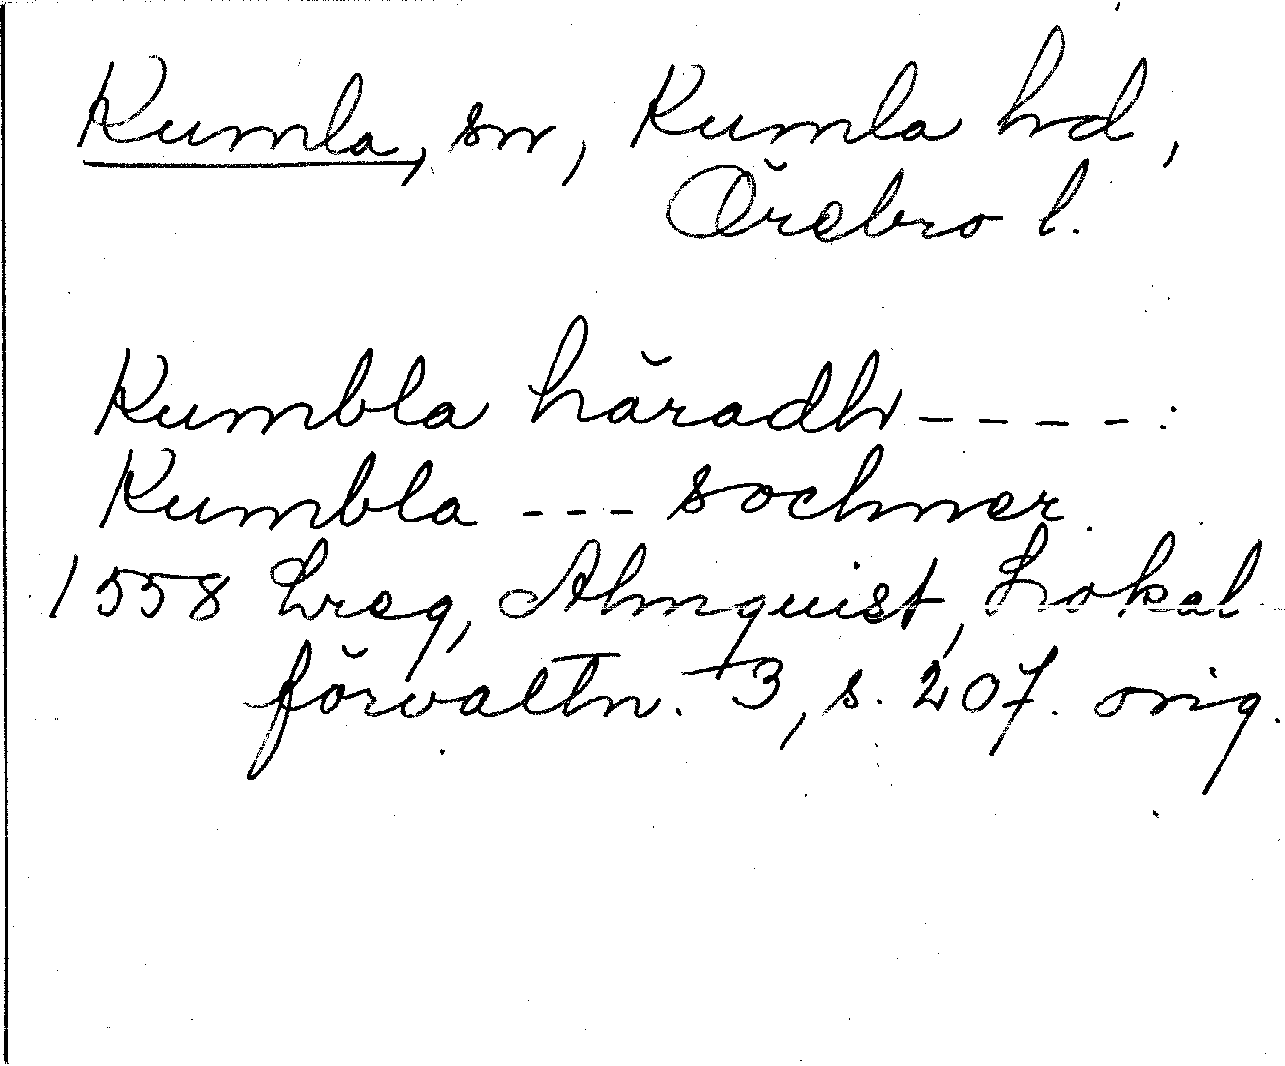 Kumla, sn, Kumla hd,
Örebro l.
Kumbla häradh ----:
Kumbla --- sochner.
1558 Lreg, Almquist, Lokal-
förvaltn. 3, s. 207. orig.